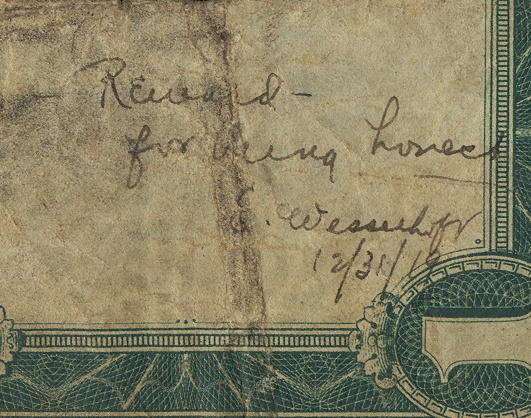 - Reward -
for being honest
E. Wesselhoft
12/31/18